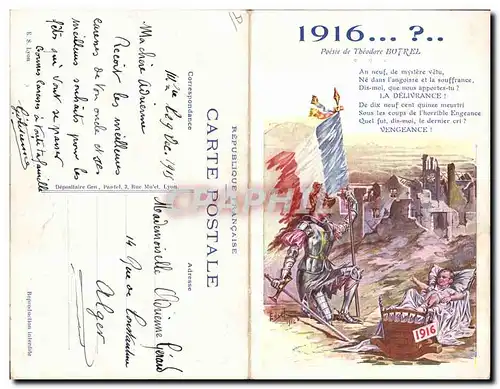 1916... ?..
Poésie de Théodore BOTREL
An neuf, de mystère vêtu,
Né dans l'angoisse et la souffrance,
Dis-moi, que nous apportes-tu ?
LA DÉLIVRANCE !
De dix neuf cent quinze meurtri
Sous les coups de l'horrible Engeance
Quel fut, dis-moi, le dernier cri ?
VENGEANCE !
1916
RÉPUBLIQUE FRANÇAISE
CARTE POSTALE
Correspondance
Adresse
Ma chère Adrienne
Reçois les meilleures
caresses de ton oncle et ses
meilleurs souhaits pour les
fêtes qui vont se passer
bonnes caresses à toute la famille
Etienne
Mademoiselle Adrienne Gérard
14 Rue de Constantine
Alger
E. S. Lyon
Dépositaire Gen, Pautel, 2, Rue Mu'et, Lyon
Reproduction interdite